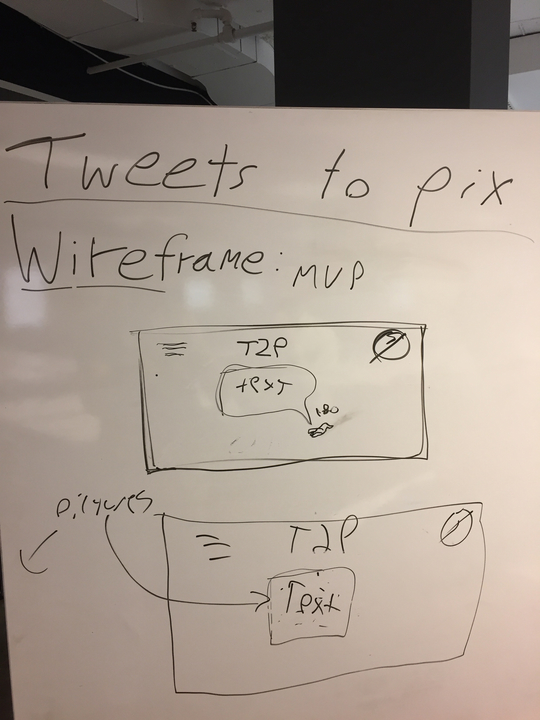 Tweets to pix
Wireframe: MVP
T2P
text
180
pictures
T2P
Text